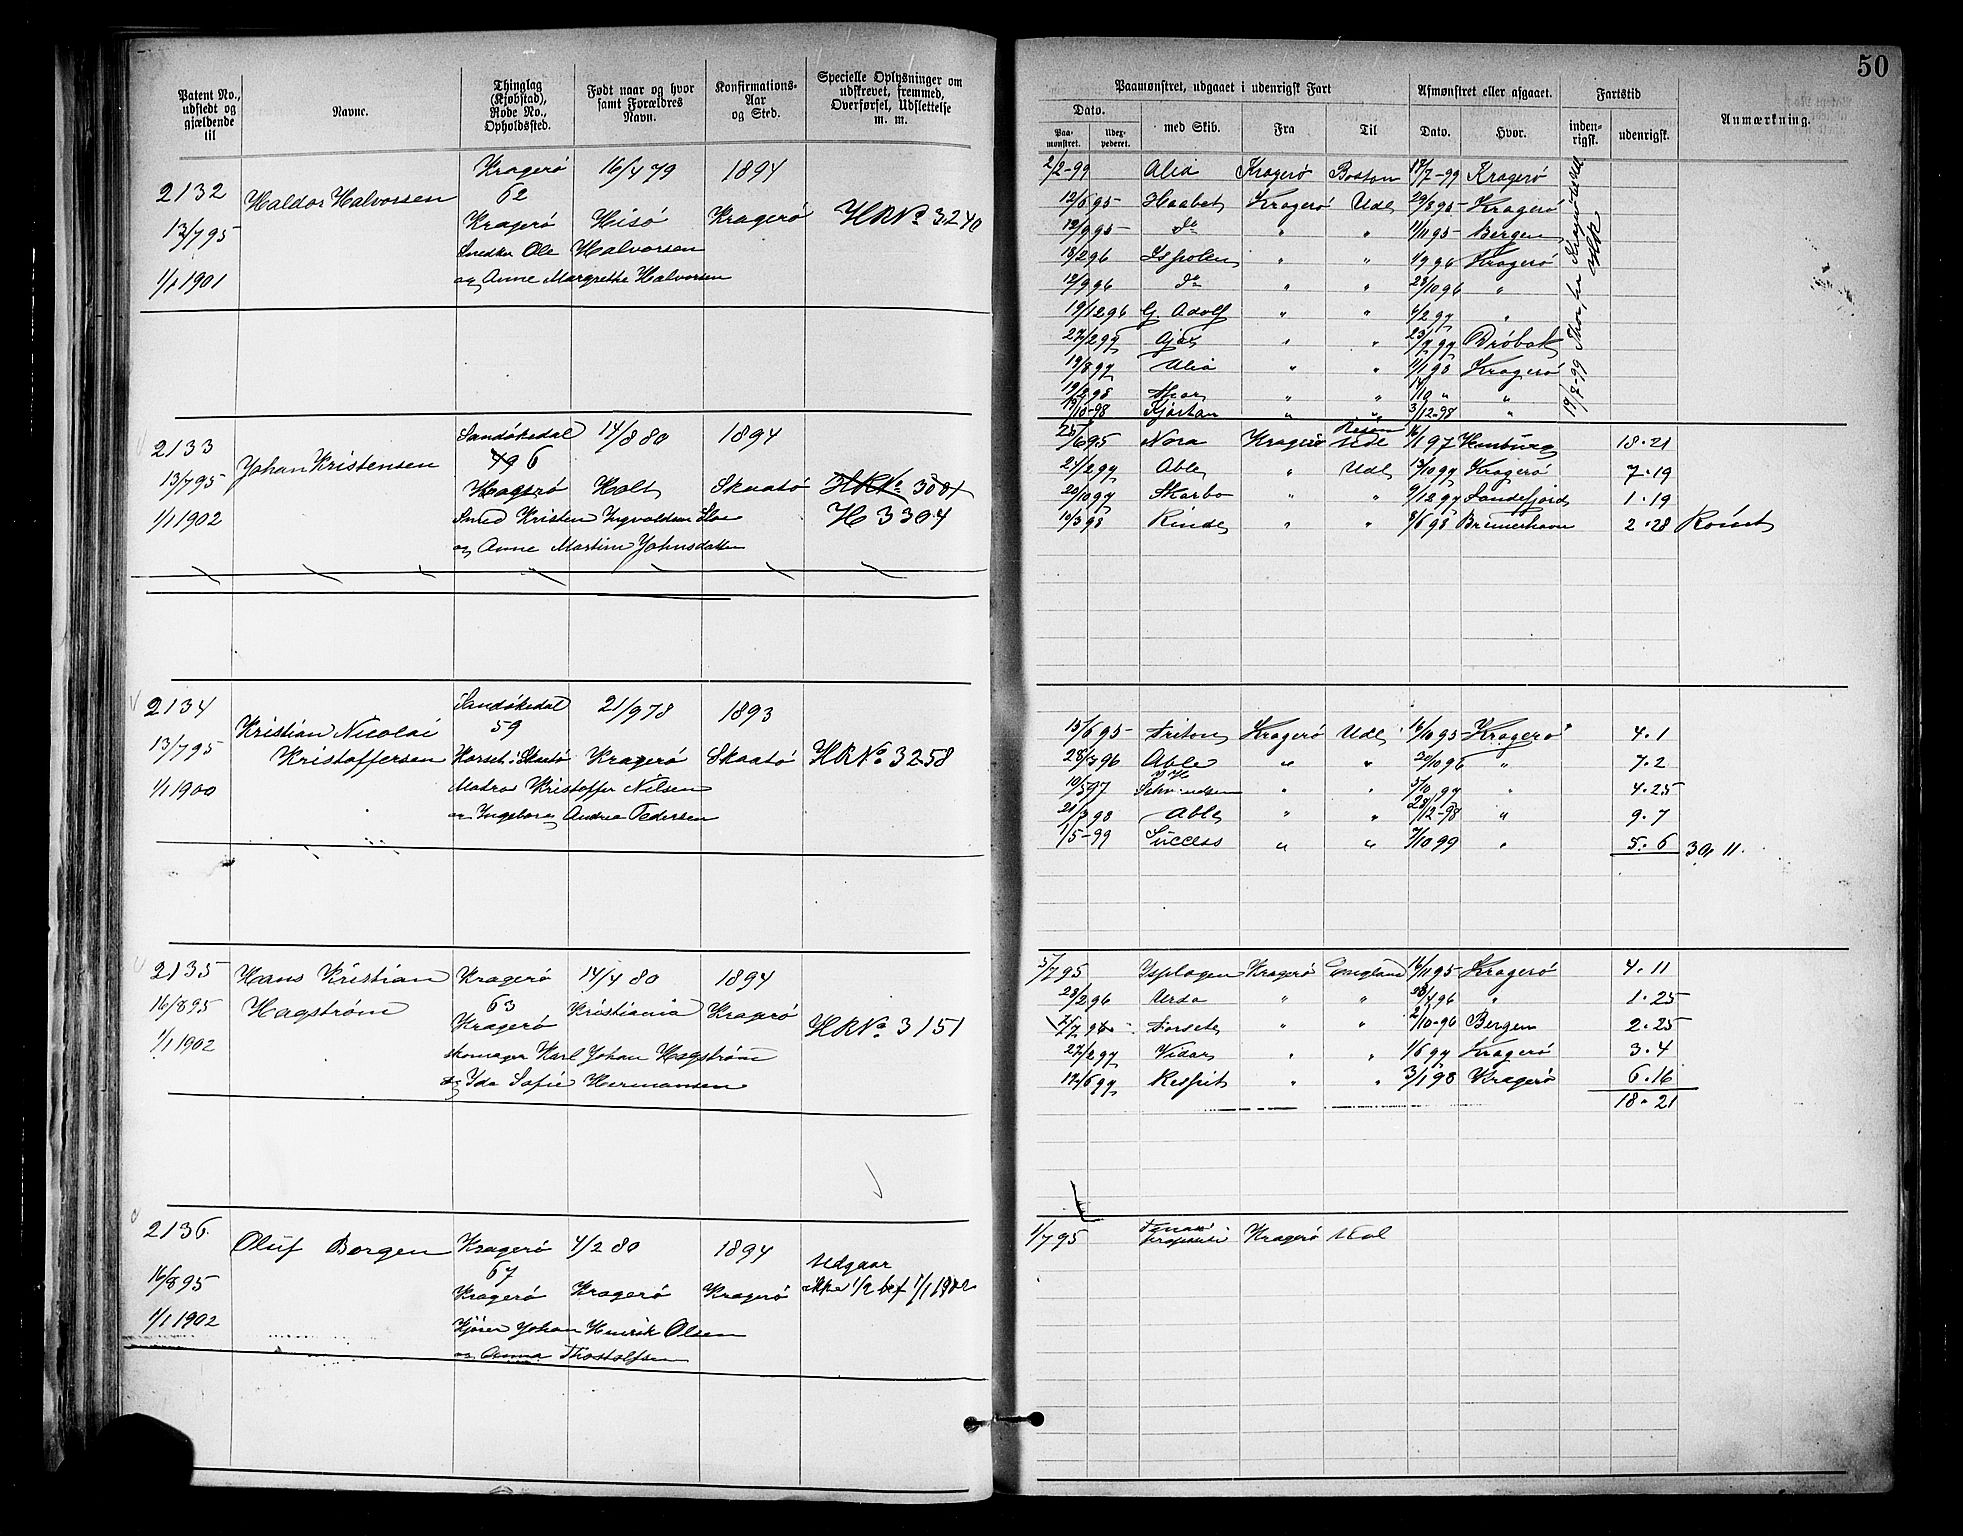 50
Patent No., udstedt og gjældende til
Navne.
Thinglag (Kjøbstad), Rode No., Opholdssted.
Født naar og hvor samt Forældres Navn.
Konfirmations-Aar og Sted.
Specielle Oplysninger om udskrevet, fremmed, Overførsel, Udslettelse m. m.
Paamønstret, udgaaet i udenrigsk Fart
Afmønstret eller afgaaet.
Fartstid
Anmærkning.
Dato.
Paa-mønstret.
Udex-pederet.
med Skib.
Fra
Til
Dato.
Hvor.
inden-rigsk.
udenrigsk.
2132 Haldor Halvorsen Kragerø 16/4 79 1894
62
13/7 95 Kragerø Hisø Kragerø HR No 3240
Snedker Ole Halvorsen
1/1 1901 og Anne Margrethe Halvorsen
2/2-99 Alia Kragerø Boston 17/7-99 Kragerø
12/6 95 Haabet Kragerø Udl 29/8 95 Kragerø
12/9 95 Do " " 1/11 95 Bergen
18/2 96 Ispolen " " 1/9 96 Kragerø
12/9 96 Do " " 28/10 96 "
19/12 96 G. Adolf " " 4/2 97 "
27/2 97 Ajax " " 23/7 97 Drøbak
19/8 97 Alia " " 1/1 98 Kragerø
Thor " " "
19/10-98 Kjartan " " 3/12-98 "
2133 Johan Kristensen Sandøkedal 14/8 80 1894
49 6
13/7 95 Kragerø Holt Skaatø HR No 3081
1/1 1902 Smed Kristen Ingvaldsen H 3304
og Anne Martine Johnsdatter
25/6 95 Nora Kragerø Udl 16/1 97 Hamburg 18.21
24/2 97 Able " Udl 13/10 97 Kragerø 7.19
20/10 97 Skarbo " " 9/12 97 Sandefjord 1.19
10/3 98 Rinde " " 8/6 98 Bremerhavn 2.28
2134 Kristian Nicolai Kristoffersen Sandøkedal 21/9 78 1893
59
13/7 95 Skaatø Kragerø Skaatø HR No 3258
1/1 1900 Matros Kristoffer Nilsen
og Ingeborg Andrea Pedersen
15/6 95 Triton Kragerø Udl 16/10 95 Kragerø 4.1
28/3 96 Able " " 30/10 96 " 7.2
10/5 97 " " 5/10 97 " 4.25
21/3 98 Able " " 28/12-98 " 9.7
1/5-99 Success " " 7/10 99 " 5.6 30, 11.
2135 Hans Kristian Hagstrøm Kragerø 14/4 80 1894
63
16/8 95 Kragerø Kristiania Kragerø HR No 3151
1/1 1902 skomager Karl Johan Hagstrøm
og Ida Sofie Hermansen
5/7 95 Ispolagen Kragerø England 16/11 95 Kragerø 4.11
28/2 96 Ursa " " 28/4 96 " 1.25
7/7 96 Forsete " " 2/10-96 Bergen 2.25
27/2 97 Vidar " " 1/6 97 Kragerø 3.4
17/6 97 Respit " " 3/1 98 Kragerø 6.16
18.21
2136 Oluf Borgen Kragerø 4/2 80 1894 Udgaar
67
16/8 95 Kragerø Kragerø Kragerø
1/1 1902 Kjører Johan Henrik Olsen
og Anna Thostolfsen
1/7 95 Kragerø Udl